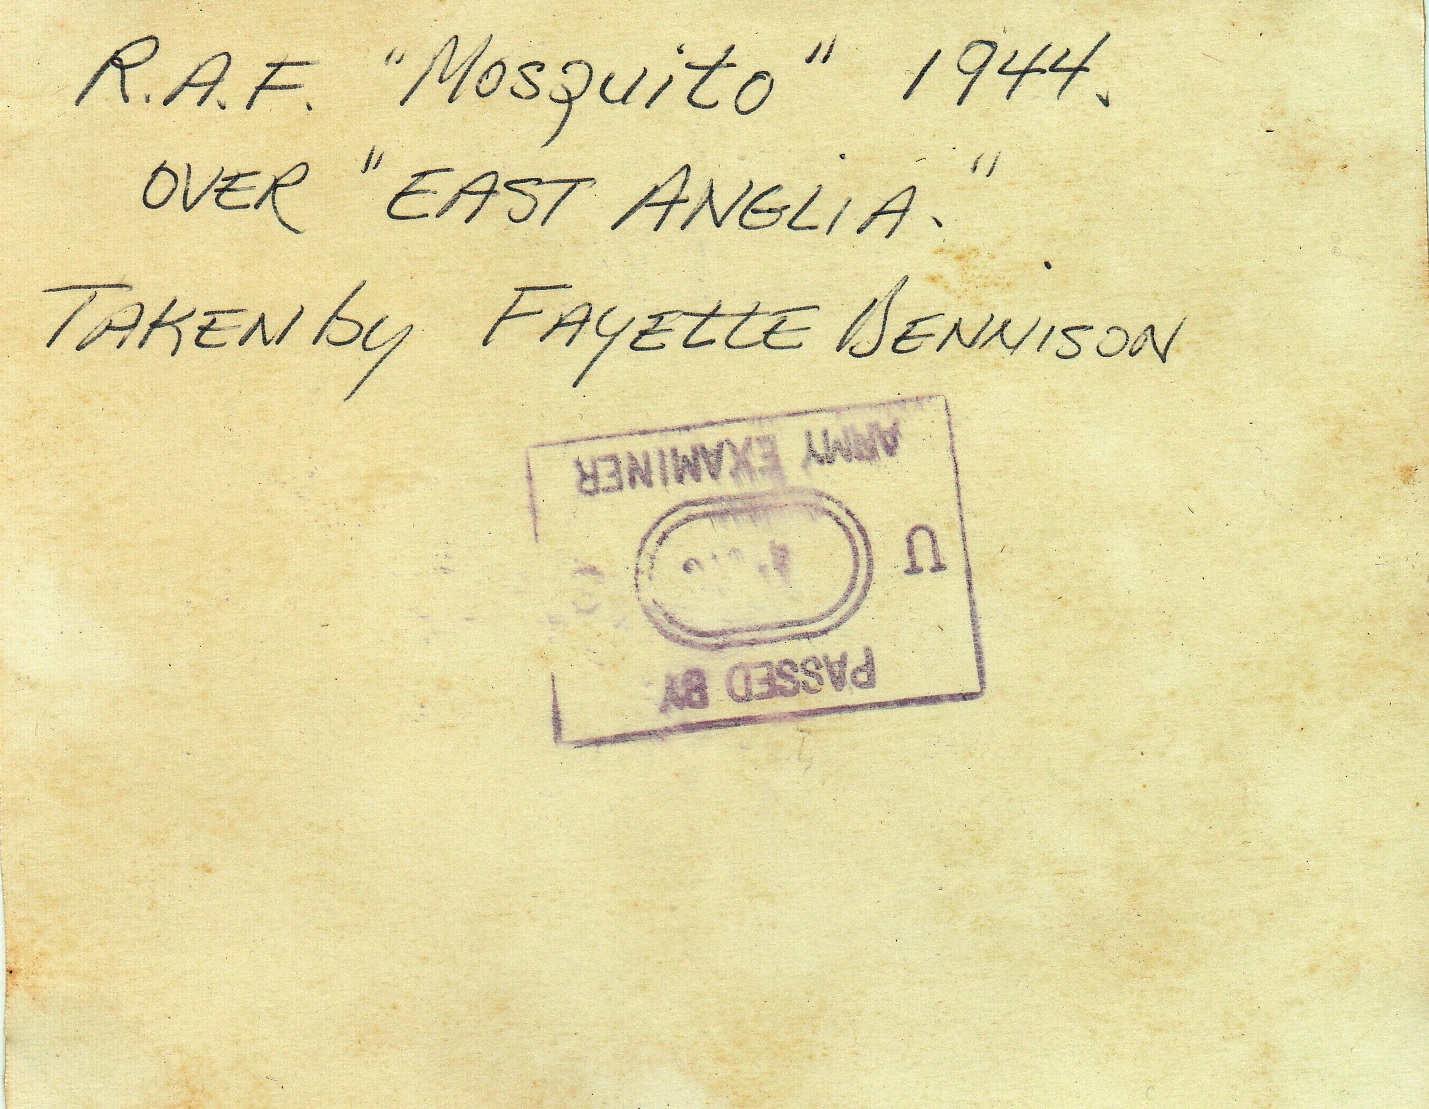 R.A.F. "Mosquito" 1944.
OVER "EAST ANGLIA."
TAKEN by FAYETTE BENNISON
PASSED BY
U
ARMY EXAMINER